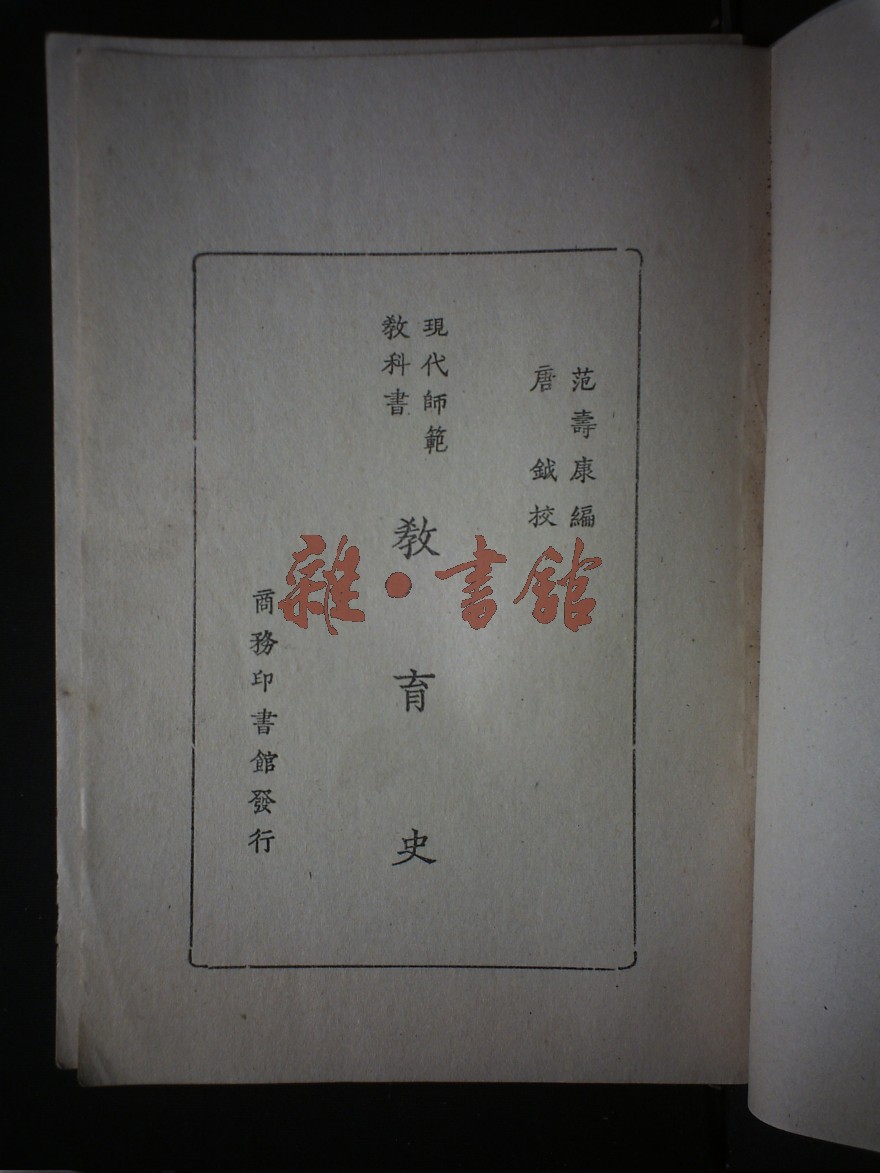 范壽康編
唐鉞校
現代師範
教科書
教育史
商務印書館發行
雜·書館